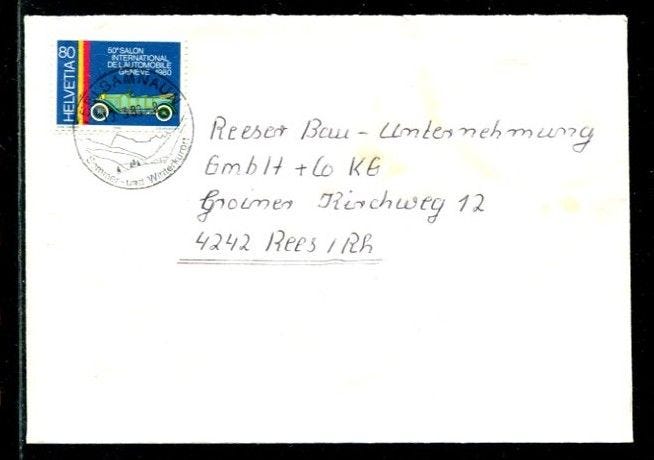 HELVETIA 80
50e SALON
INTERNATIONAL
DE L'AUTOMOBILE
GENEVE 1980
SAMNAUN
Sommer- und Winterkurort
Reeser Bau - Unternehmung
GmbH + Co KG
Groiner Kirchweg 12
4242 Rees / Rh